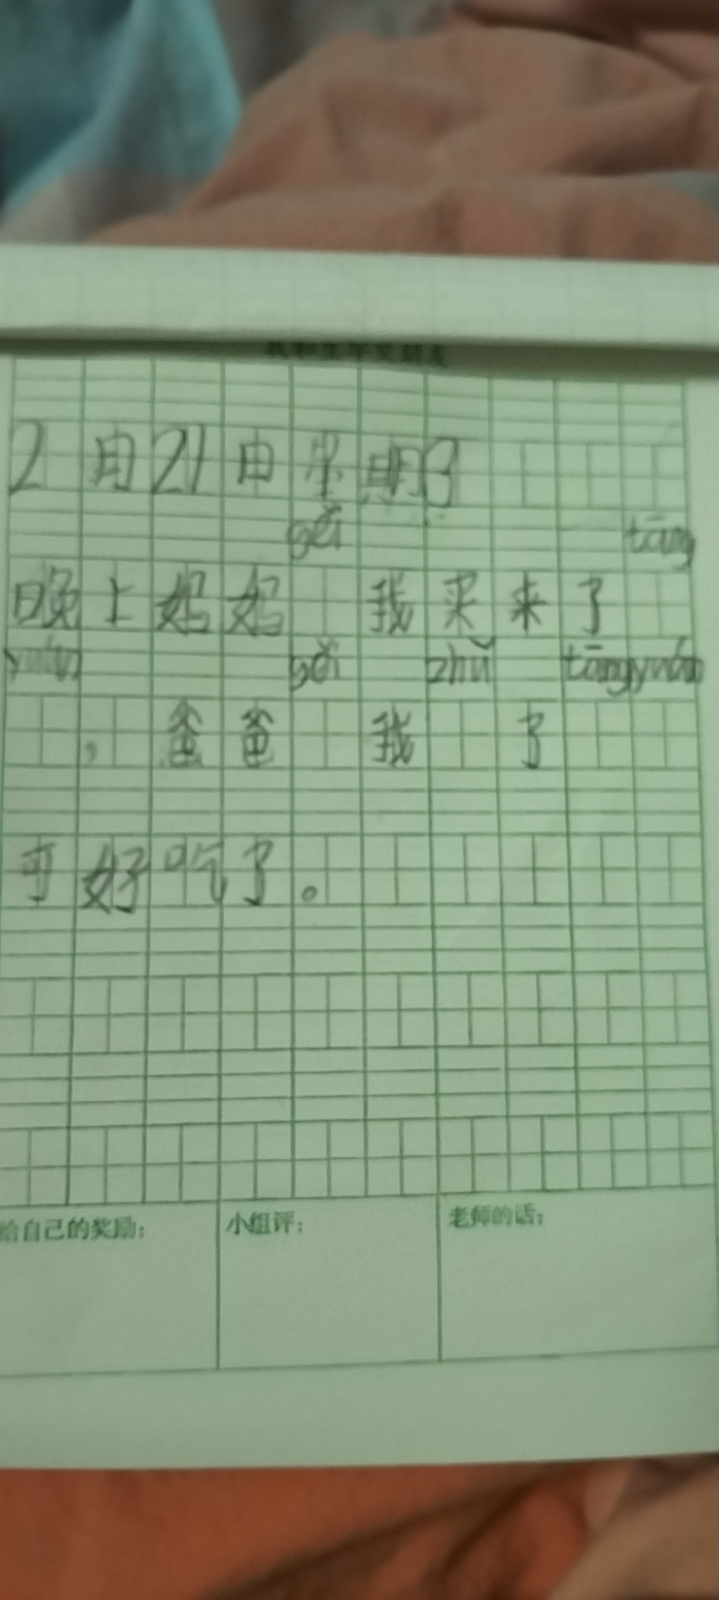 2月21日星期3
gěi tāng
晚上妈妈 我买来了
yuán gěi zhǔ tāngyuán
，爸爸 我 了
可好吃了。
给自己的奖励：
小组评：
老师的话：